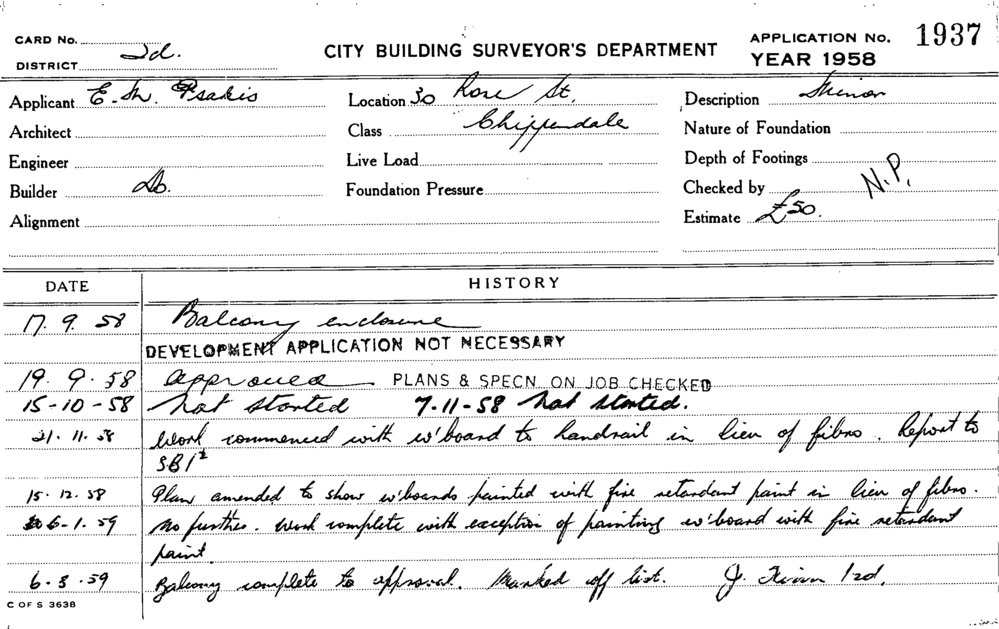 CARD No.
DISTRICT 2d.
CITY BUILDING SURVEYOR'S DEPARTMENT
APPLICATION No. 1937
YEAR 1958
Applicant E. M. Psakis
Location 30 Rose St.
Description Minor
Architect
Class Chippendale
Nature of Foundation
Engineer
Live Load
Depth of Footings
Builder Do.
Foundation Pressure
Checked by N.P.
Alignment
Estimate £50.
DATE HISTORY
17. 9. 58 Balcony enclosure
DEVELOPMENT APPLICATION NOT NECESSARY
19. 9. 58 approved PLANS & SPECN. ON JOB CHECKED
15-10-58 Not started 7-11-58 Not started.
21. 11. 58 Work commenced with w'board to handrail in lieu of fibro. Report to
SBI²
15. 12. 58 Plan amended to show w'boards painted with fire retardant paint in lieu of fibro.
6-1. 59 No further. Work complete with exception of painting w'board with fire retardant
paint.
6-3.59 Balcony complete to approval. Marked off list. J. 2d.
C OF S 3638